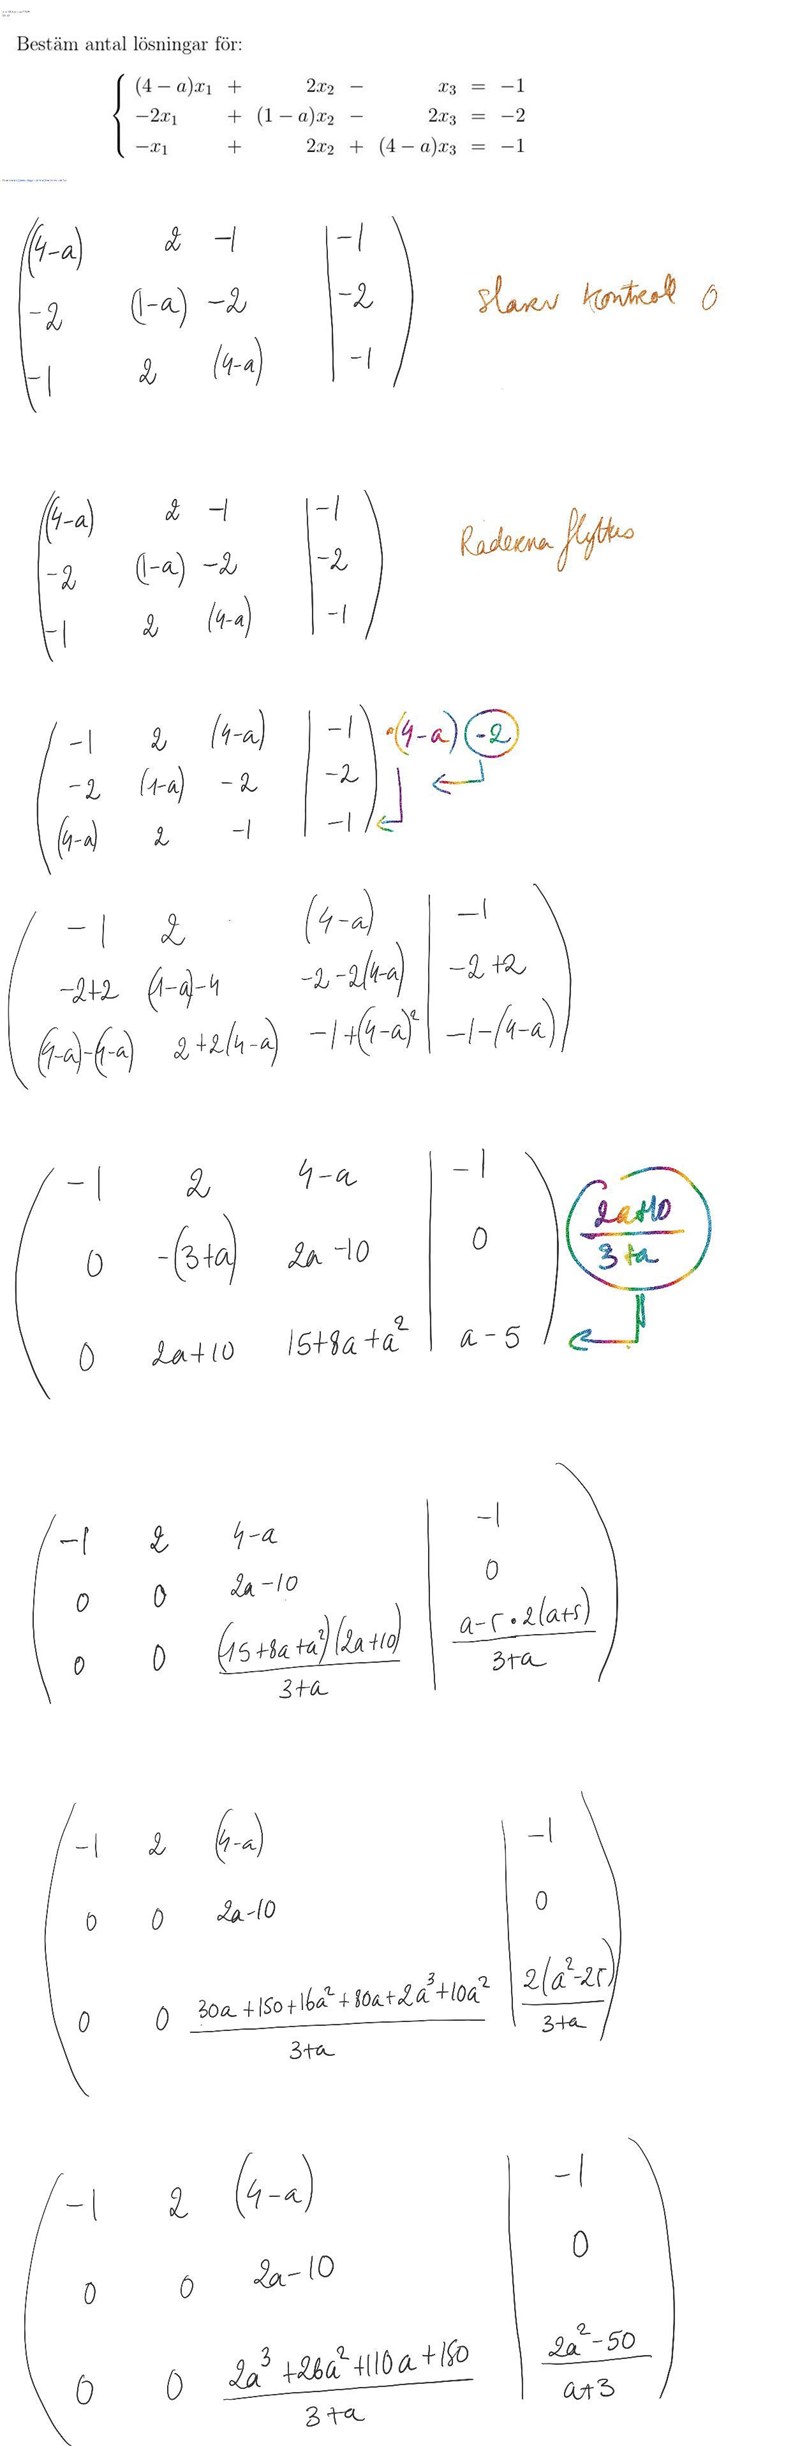 Bestäm antal lösningar för:
(4 − a)x₁ + 2x₂ − x₃ = −1
−2x₁ + (1 − a)x₂ − 2x₃ = −2
−x₁ + 2x₂ + (4 − a)x₃ = −1
(4-a) 2 -1 | -1
-2 (1-a) -2 | -2
-1 2 (4-a) | -1
slarv kontroll 0
(4-a) 2 -1 | -1
-2 (1-a) -2 | -2
-1 2 (4-a) | -1
Raderna flyttas
-1 2 (4-a) | -1 ·(4-a) (-2)
-2 (1-a) -2 | -2
(4-a) 2 -1 | -1
-1 2 (4-a) | -1
-2+2 (1-a)-4 -2-2(4-a) | -2+2
(4-a)-(4-a) 2+2(4-a) -1+(4-a)² | -1-(4-a)
-1 2 4-a | -1
0 -(3+a) 2a-10 | 0
0 2a+10 15+8a+a² | a-5
2a+10
3+a
-1 2 4-a | -1
0 0 2a-10 | 0
0 0 (15+8a+a²)(2a+10) | a-5·2(a+5)
3+a 3+a
-1 2 (4-a) | -1
0 0 2a-10 | 0
0 0 30a+150+16a²+80a+2a³+10a² | 2(a²-25)
3+a 3+a
-1 2 (4-a) | -1
0 0 2a-10 | 0
0 0 2a³+26a²+110a+150 | 2a²-50
3+a a+3